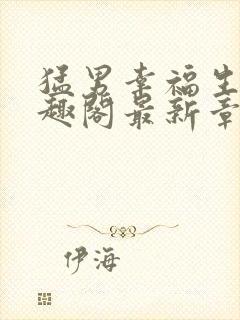 猛男幸福生
趣阁最新章
伊海